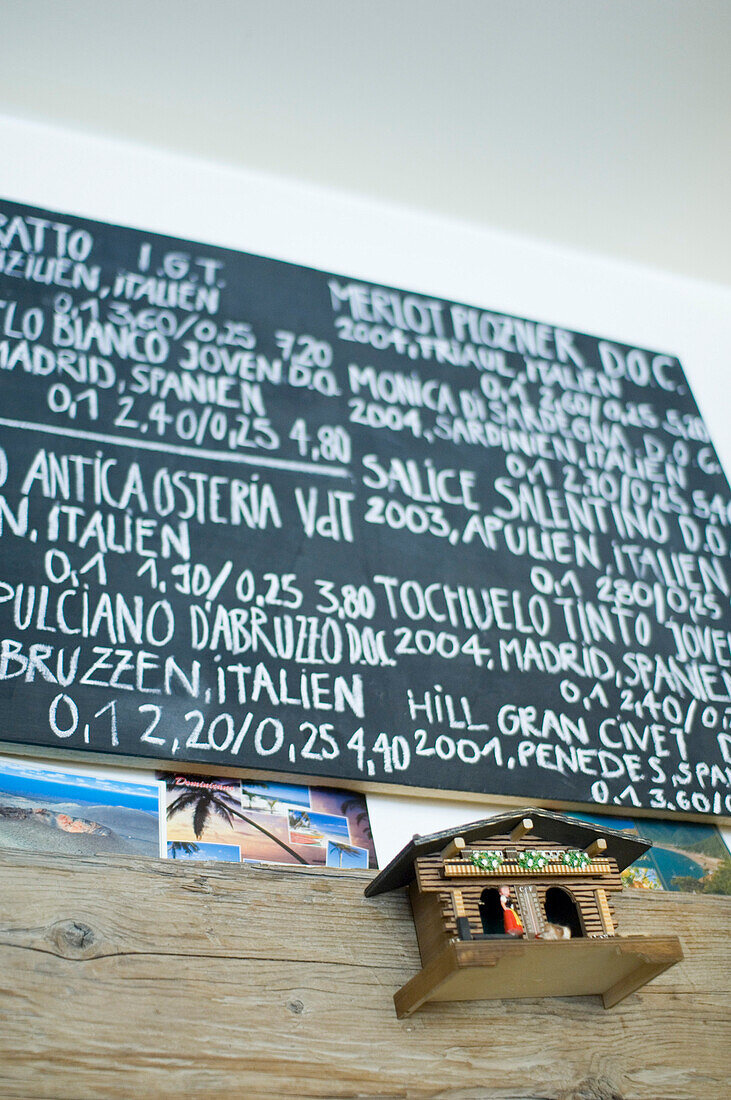 RATTO I.G.T.
ZILIEN, ITALIEN
0,1 3,60/0,25 7,20
LO BIANCO JOVEN D.O.
MADRID, SPANIEN
0,1 2,40/0,25 4,80
O ANTICA OSTERIA VdT
N, ITALIEN
0,1 1,90/0,25 3,80
PULCIANO D'ABRUZZO D.O.C.
BRUZZEN, ITALIEN
0,1 2,20/0,25 4,40
MERLOT PLOZNER D.O.C.
2004, FRIAUL, ITALIEN
0,1 2,60/0,25 5,20
MONICA DI SARDEGNA D.O.C.
2004, SARDINIEN, ITALIEN
0,1 2,70/0,25 5,4
SALICE SALENTINO D.O.
2003, APULIEN, ITALIEN
0,1 2,80/0,25
TOCHUELO TINTO JOVE
2004, MADRID, SPANIEN
0,1 2,40/0,
HILL GRAN CIVET D
2001, PENEDES, SPA
0,1 3,60/0
Dominicana